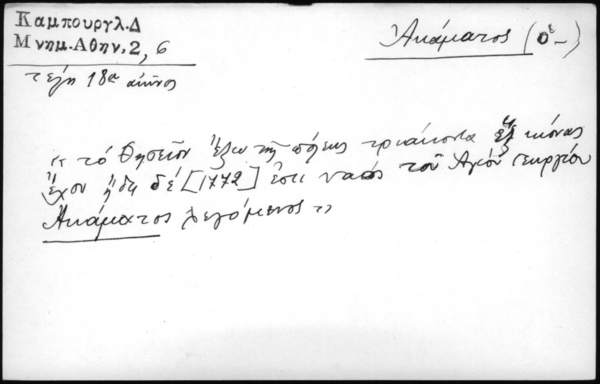 Καμπουργλ.Δ
Μνημ.Αθην.2, 6
τέλη 18ου αιῶνος
Ἀκάματος (ὁ –)
«τό Θησεῖον ἔξω τῆς πόλεως τριάκοντα ἕξ κίονας
ἔχον ἤδη δέ [1772] ἐστι ναός τοῦ Ἁγίου Γεωργίου
Ἀκάματος λεγόμενος»